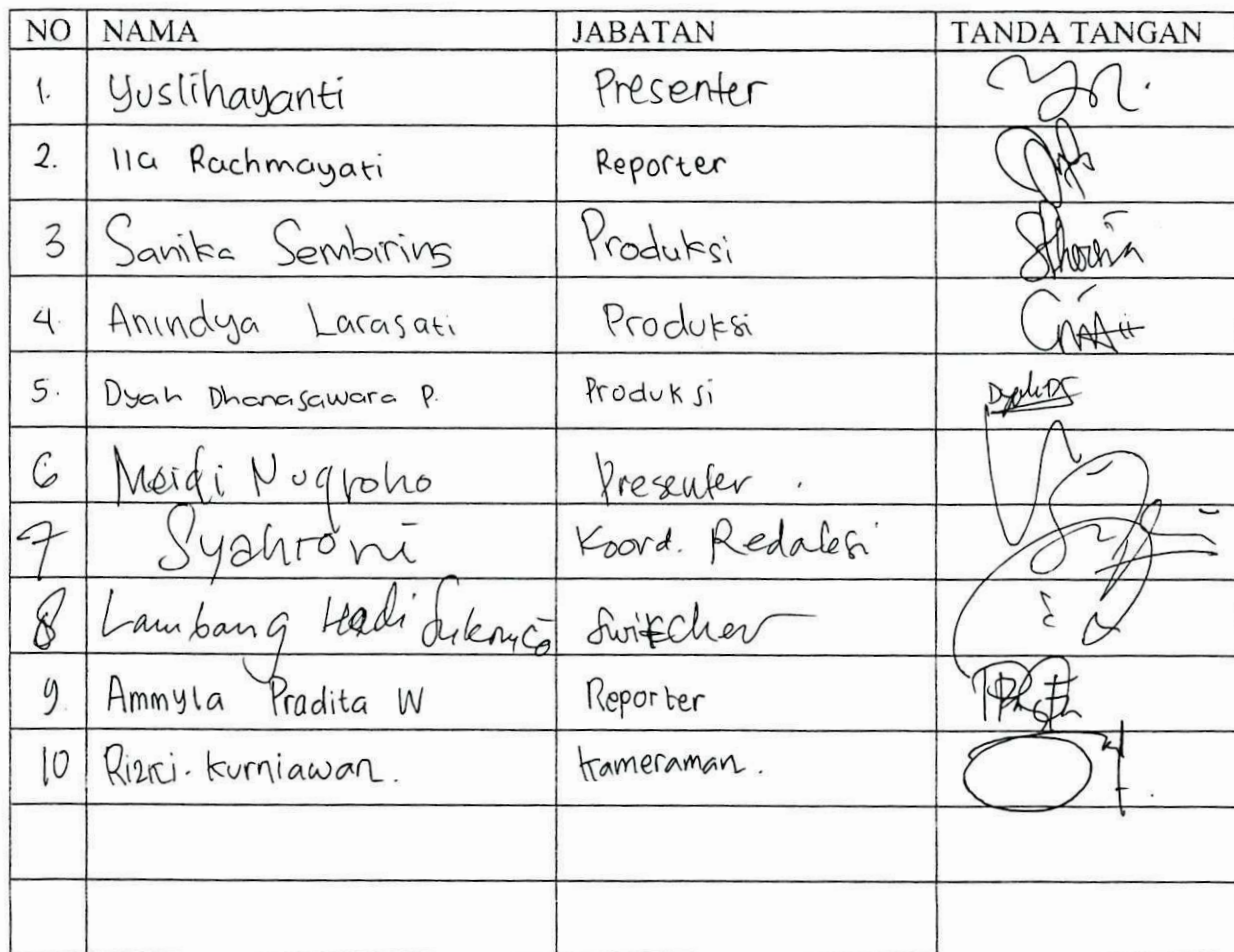 NO NAMA JABATAN TANDA TANGAN
1. Yuslihayanti Presenter
2. Ila Rachmayati Reporter
3 Sanika Sembiring Produksi
4. Anindya Larasati Produksi
5. Dyah Dhanasawara P. Produksi
6 Meidi Nugroho Presenter .
7 Syahroni Koord. Redaksi
8 Lambang Hadi Switcher
9. Ammyla Pradita W Reporter
10 Rizki. Kurniawan. Kameraman.